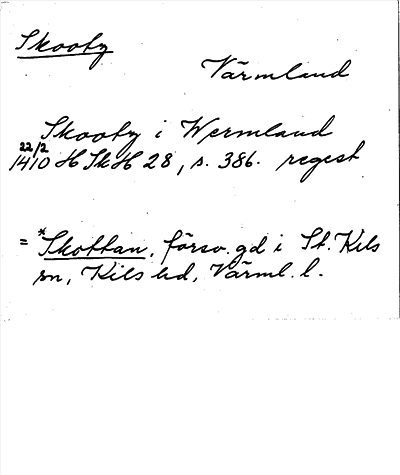 Skooby
Värmland
Skooby i Wermland
22/2
1410 HSkH 28, s. 386. regest
= *Skottan, försv. gd i St. Kils
sn, Kils hd, Värml. l.